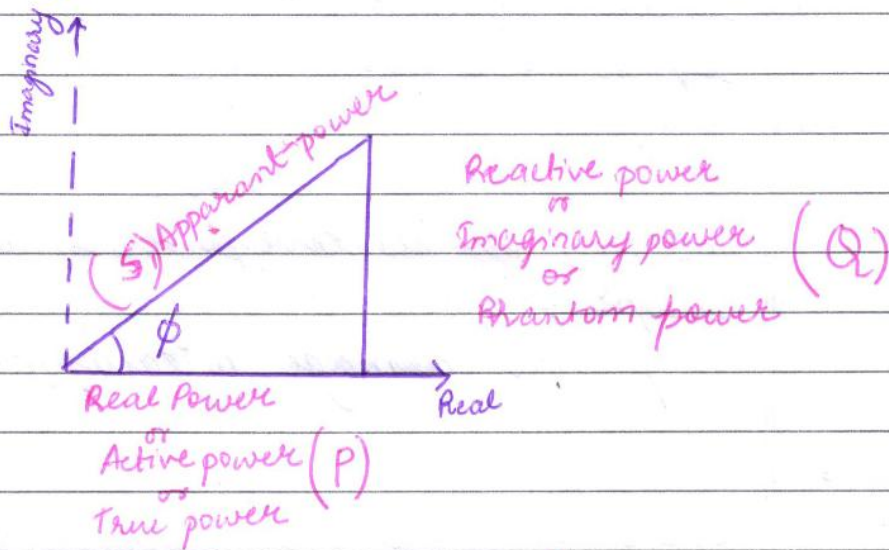 Imaginary
(S) Apparant power
Reactive power
or
Imaginary power (Q)
or
Phantom power
ϕ
Real Power
or
Active power (P)
or
True power
Real